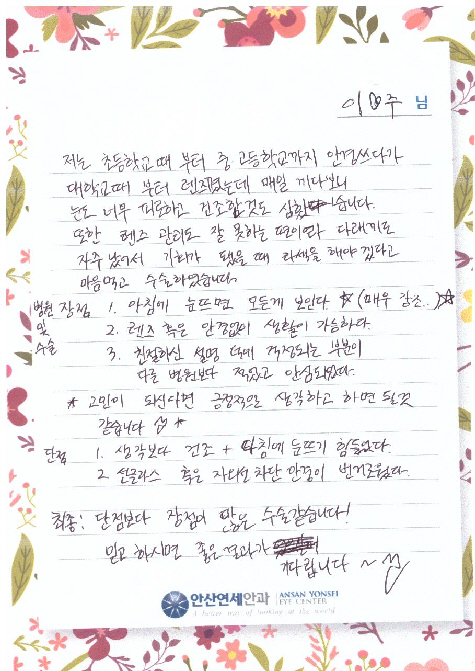 이 주 님
저는 초등학교때 부터 중 고등학교까지 안경쓰다가
대학교때 부터 렌즈꼈는데 매일 끼다보니
눈도 너무 피로하고 건조함도 심했습니다.
또한 렌즈 관리도 잘 못하는 편이라 다래끼도
자주 났어서 기회가 됐을 때 라섹을 해야겠다고
마음먹고 수술하였습니다.
병원 및 수술
장점 1. 아침에 눈뜨면 모든게 보인다 ☆ (매우 강조..)☆
2. 렌즈 혹은 안경없이 생활이 가능하다.
3. 친절하신 설명 덕에 걱정되는 부분이
다른 병원보다 적었고 안심되었다.
* 고민이 되신다면 긍정적으로 생각하고 하면 될것
같습니다 *
단점 1. 생각보다 건조 + 아침에 눈뜨기 힘들었다.
2. 선글라스 혹은 자외선 차단 안경이 번거로웠다.
최종: 단점보다 장점이 많은 수술같습니다!
믿고 하시면 좋은결과가
기다립니다 ~
안산연세안과 ANSAN YONSEI
EYE CENTER
A better way of looking at the world